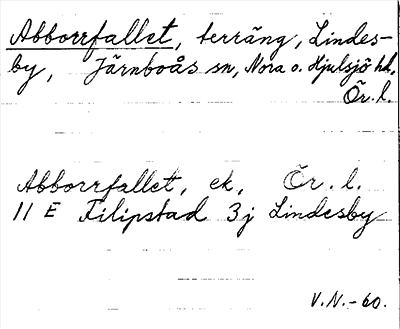 Abborrfallet, terräng, Lindes-
by, Järnboås sn, Nora o. Hjulsjö hd,
Ör. l.
Abborrfallet, ek, Ör. l.
11 E Filipstad 3j Lindesby
V.N.-60.